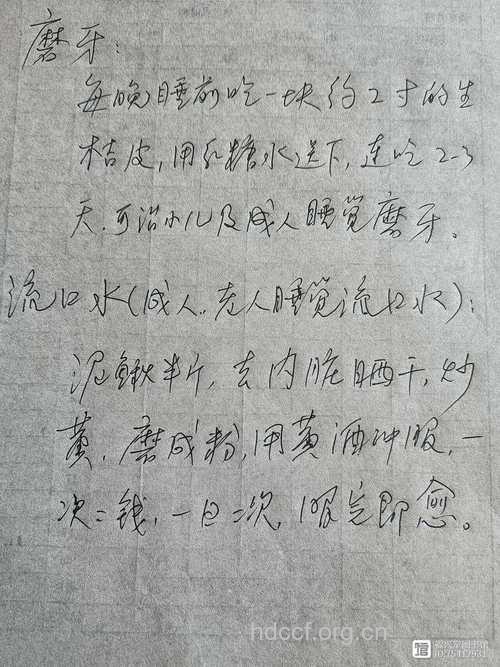 磨牙:
每晚睡前吃一块约2寸的生
桔皮,用乳糖水送下,连吃2-3
天.可治小儿及成人睡觉磨牙。
流口水(成人..老人睡觉流口水):
泥鳅半斤,去内脏晒干,炒
黄,磨成粉,用黄酒冲服,一
次二钱,一日二次,服完即愈。
hdccf.org.cn